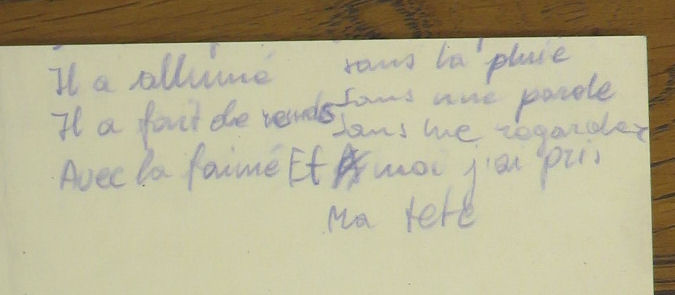 Il a allumé
Il a fait de ronds
Avec la faimé
sous la pluie
Sans une parole
Sans me regarder
Et moi j'ai pris
Ma tete